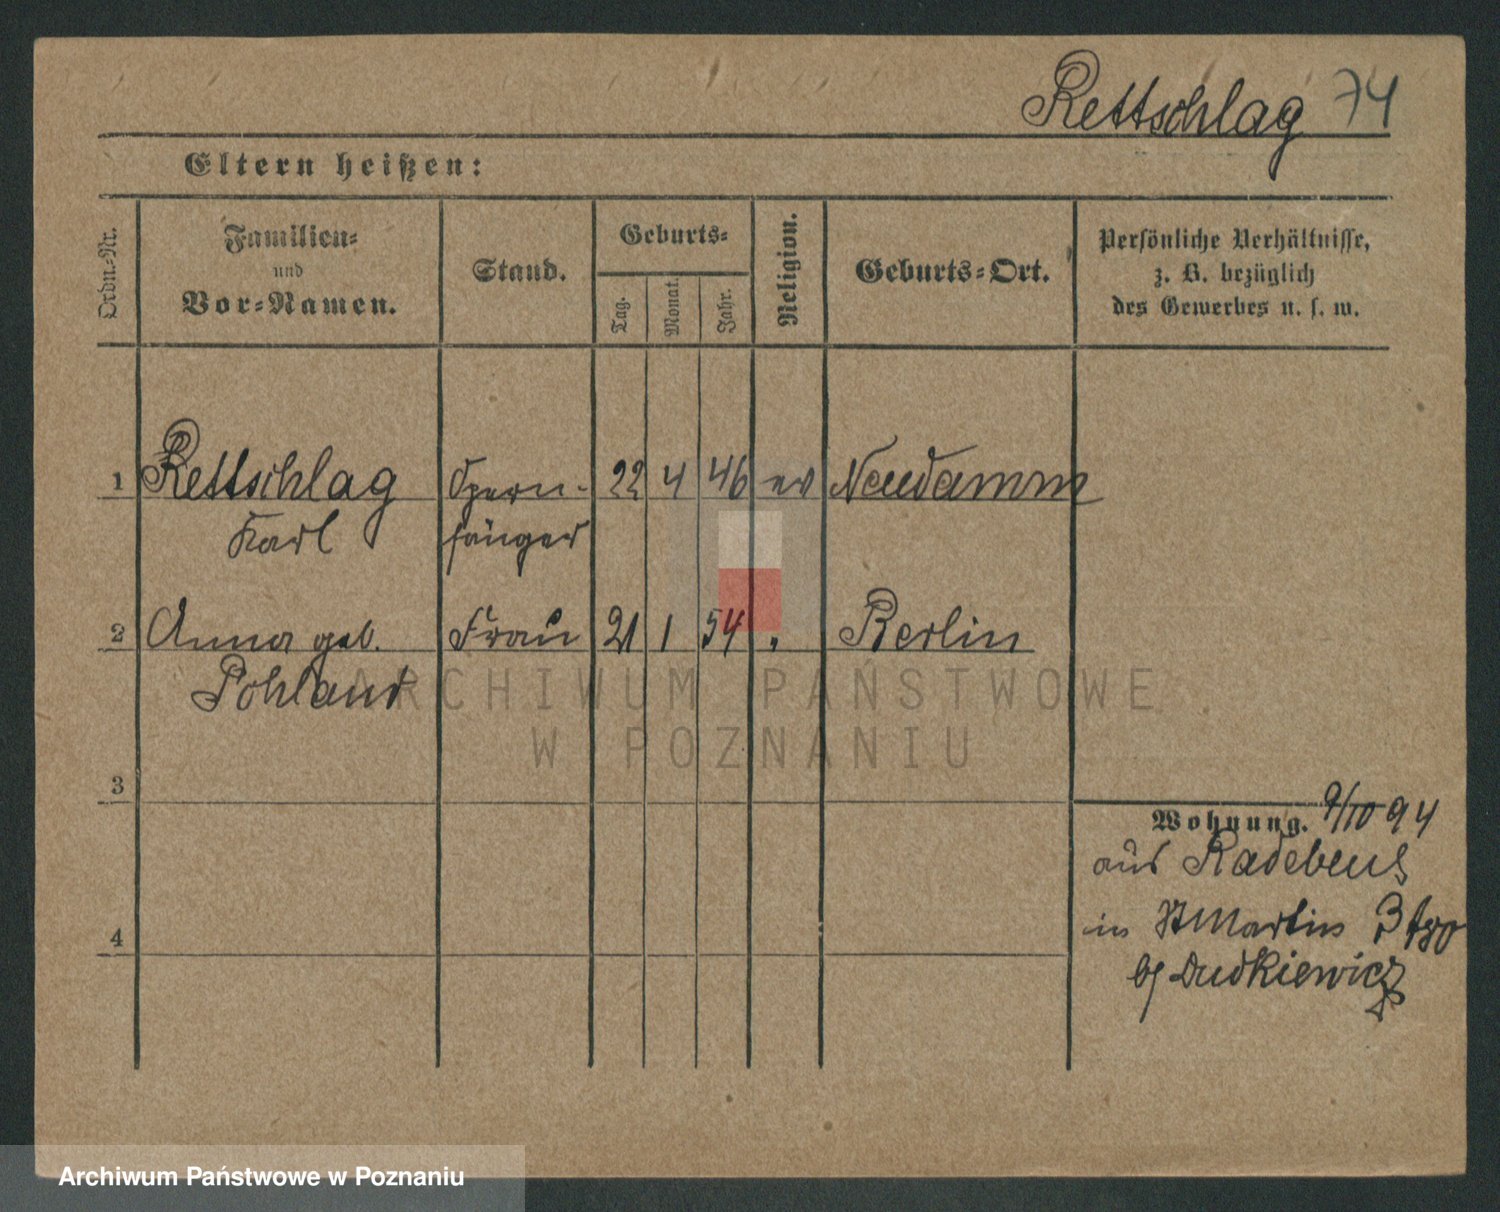 Rettschlag 74
Eltern heißen:
Ordn.-Nr.
Familien-
und
Vor-Namen.
Stand.
Geburts-
Tag.
Monat.
Jahr.
Religion.
Geburts-Ort.
Persönliche Verhältnisse,
z. B. bezüglich
des Gewerbes u. s. w.
1 Rettschlag Opern- 22 4 46 ev Neudamm
Karl sänger
2 Anna geb. Frau 21 1 54 " Berlin
Pohland
3
4
Wohnung. 9/10 94
aus Radebeul
in St Martin 3
bj Dudkiewicz
ARCHIWUM PAŃSTWOWE
W POZNANIU
Archiwum Państwowe w Poznaniu